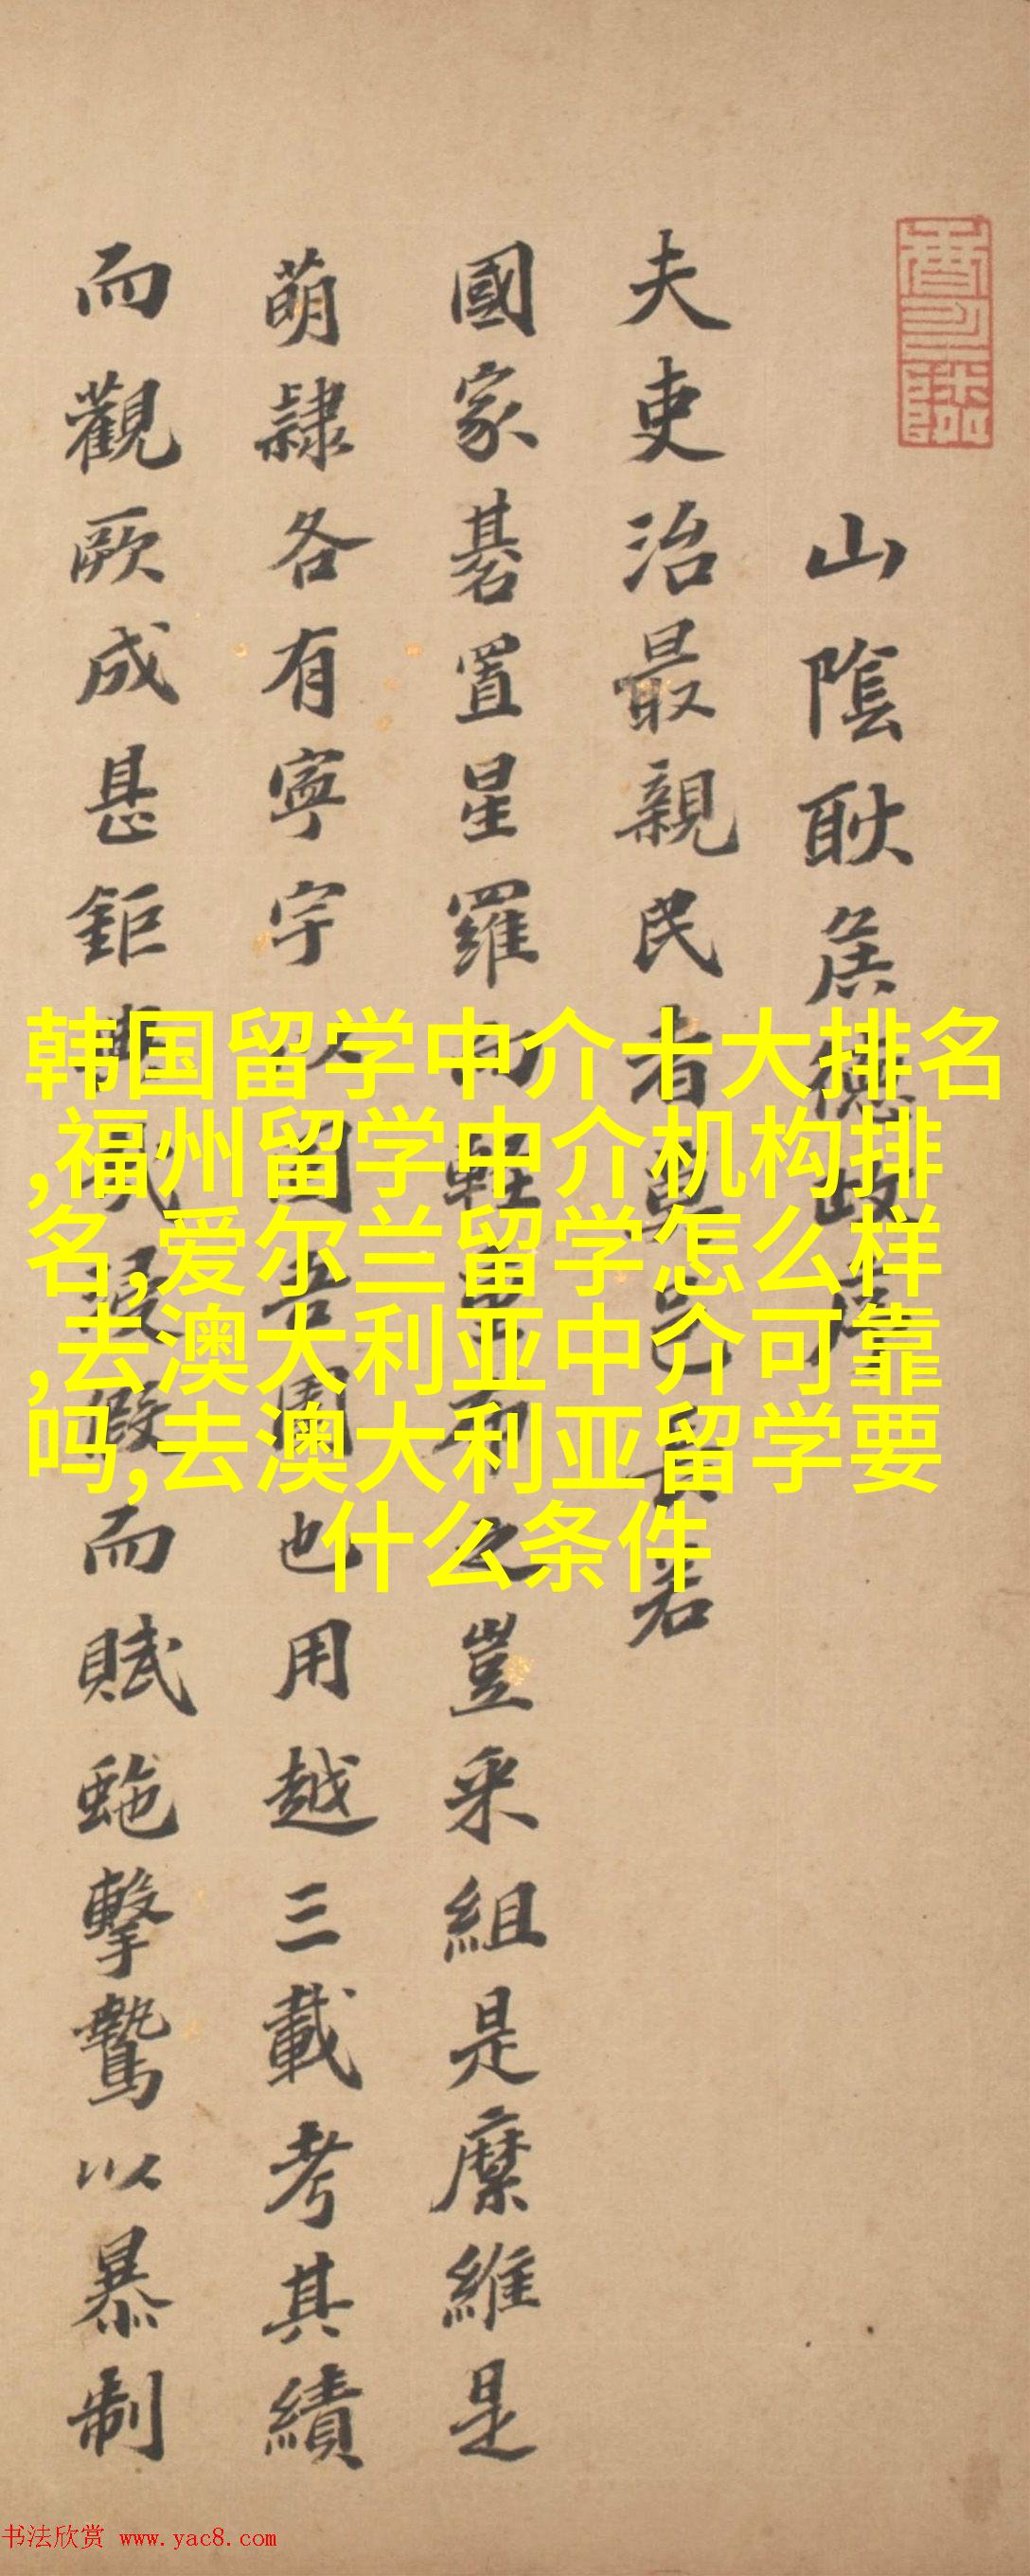 山陰耿侯德政序
夫吏治最親民者莫邑長若
國家碁置星羅
豈采組是縻維是
萌隷各有寧宇
也用越三載考其績
而觀厥成甚鉅
而賦虵擊鷙以暴制
韩国留学中介十大排名
,福州留学中介机构排
名,爱尔兰留学怎么样
,去澳大利亚中介可靠
吗,去澳大利亚留学要
什么条件
书法欣赏 www.yac8.com